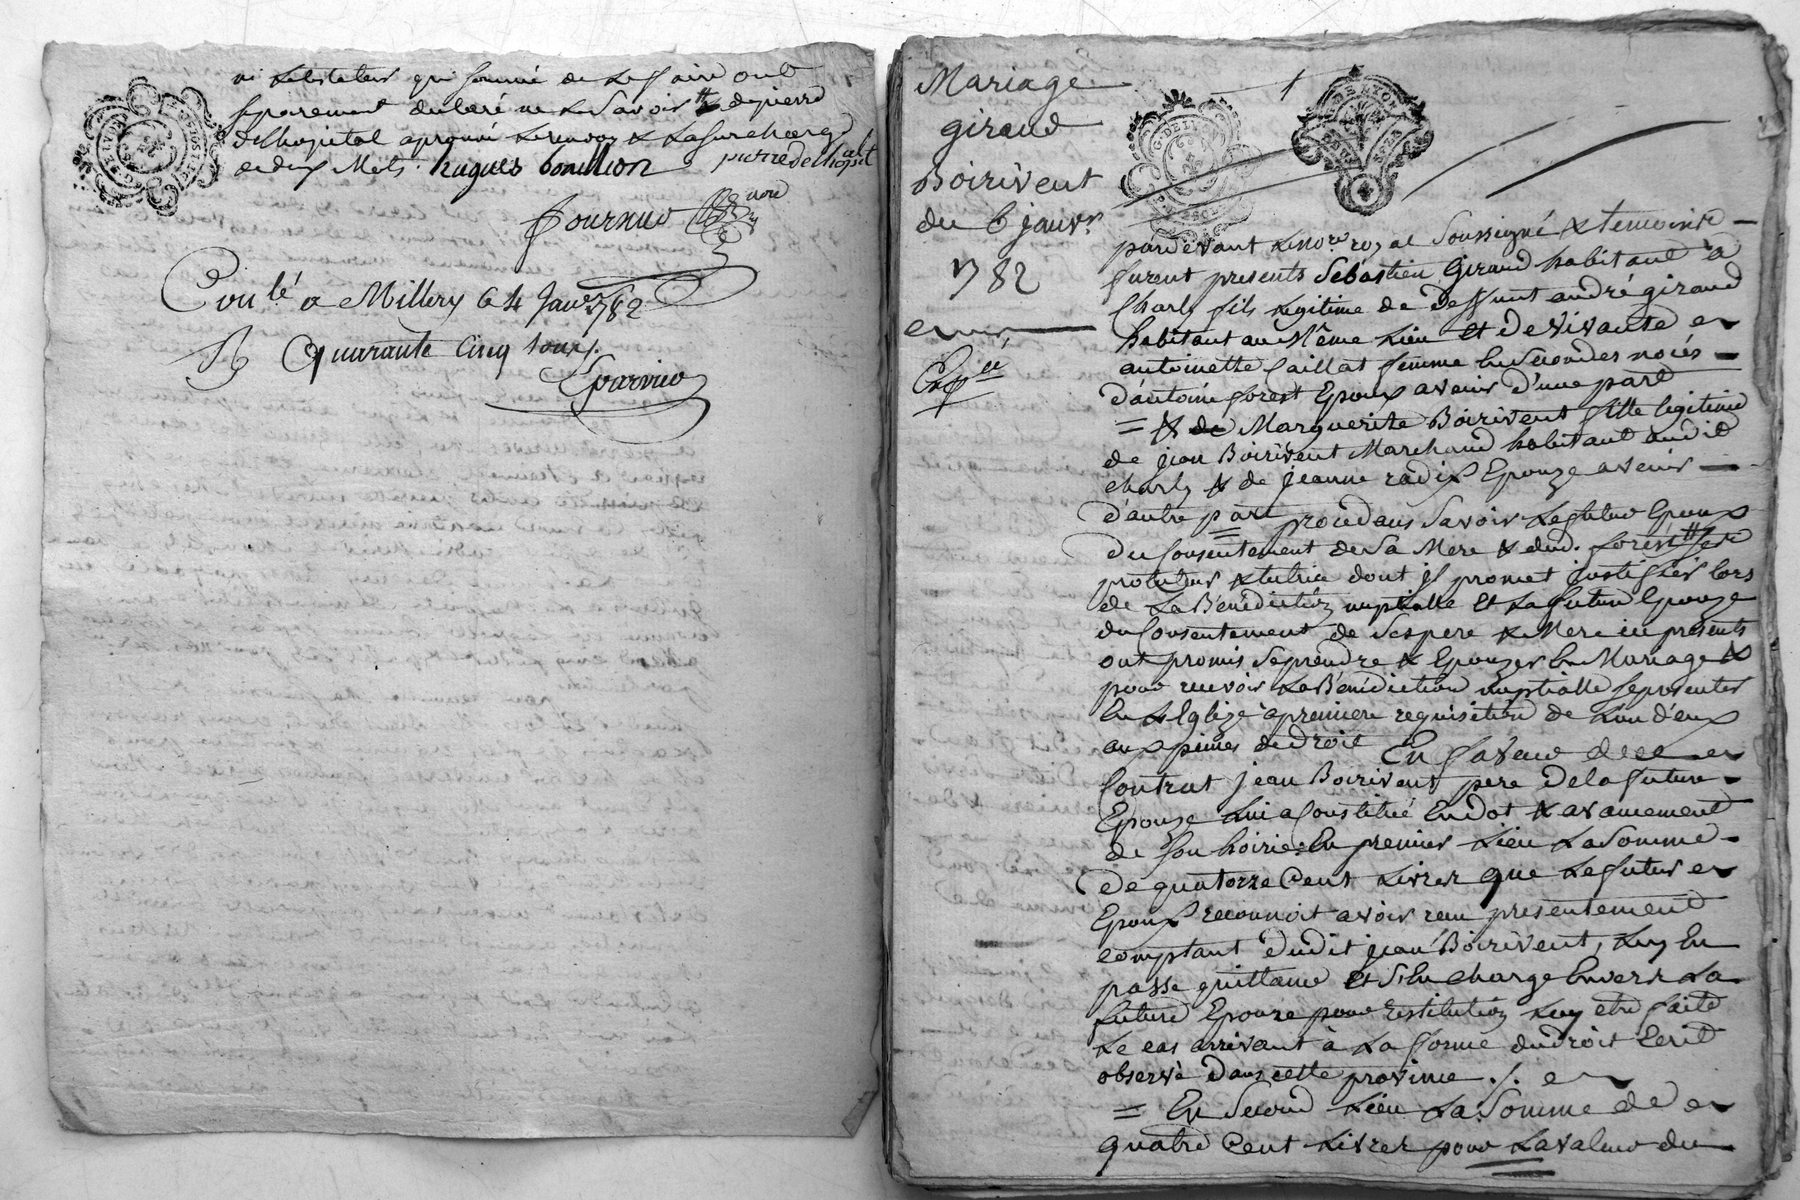 ni debiteur qui sommé de le faire ont
separement declaré ne le savoir # de pierre
delhopital aprouvé le renvoy & la surcharge
de deux Mots hugues bouillion pierre delhopital
fournier nore
Conlé a Millery le 4 Janvr 1782
R quarante Cinq sous.
fournier
Mariage
giraud
Boirivent
du 6 janvr
1782
Expée
1
pardevant le nore royal soussigné & temoins
furent presents Sebastien Giraud habitant a
Charly fils legitime de deffunt andré giraud
habitant au Même lieu et de vivante
antoinette Caillat femme En secondes noces
d'antoine forest Epoux avenir d'une part
= & de Marguerite Boirivent fille legitime
de jean Boirivent Marchand habitant audit
charly & de jeanne radix Epouze avenir
d'autre part procedans savoir le futur Epoux
du Consentement de Sa Mere & dud. forest #
protuteur & tutrice dont il promet justifier lors
de La Bénédiction nuptialle et La future Epouze
du Consentement de Ses pere & Mere ici presents
ont promis se prendre & Epouzer En Mariage &
pour recevoir La Bénédiction nuptialle se presenter
En L'Eglize a premiere requisition de L'un d'eux
aux peines de droit En faveur de ce
Contrat jean Boirivent pere de la future
Epouze Lui a Constitué En dot & avancement
de son hoirie En premier Lieu La Somme
de quatorze Cent Livres que Le futur
Epoux reconnoit avoir recu presentement
comptant dudit jean Boirivent, Luy En
passe quittance et s'En charge Envers La
future Epouze pour restitution Luy etre faite
Le cas arrivant à La forme du droit Ecrit
observé dans cette province ./.
= En Second Lieu La Somme de
quatre Cent Livres pour La valeur du